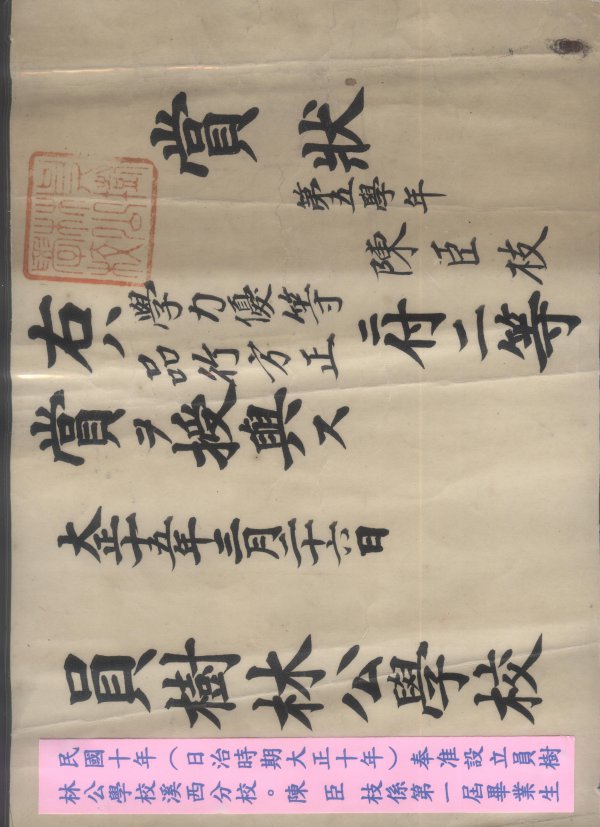 賞狀
第五學年
陳臣枝
右ハ
學力優等
品行方正
ニ付二等
賞ヲ授與ス
大正十五年三月二十六日
員樹林公學校
民國十年（日治時期大正十年）奉准設立員樹
林公學校溪西分校。陳臣枝係第一屆畢業生